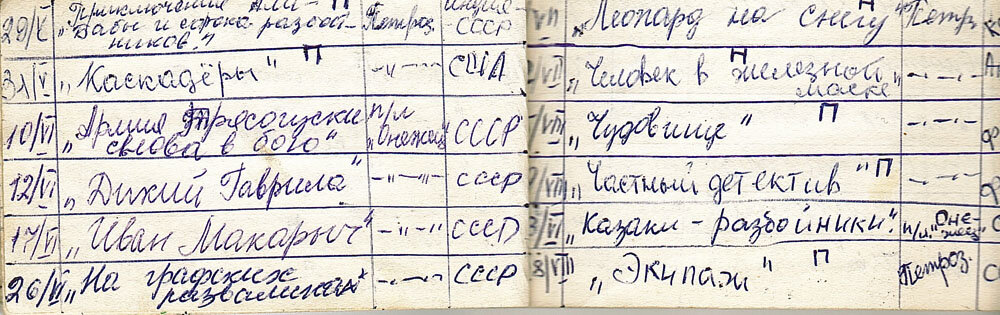 29/V „Приключения Али- П Петроз. Индия-
Бабы и сорока разбой- СССР
ников."
31/V „Каскадёры" П –„– США
10/VI „Армия Трясогузки п/л СССР
снова в бою" „Онежец"
12/VI „Дикий Гаврила" –„– СССР
17/VI „Иван Макарыч" –„– СССР
26/VI „На графских –„– СССР
развалинах"
/VII „Леопард на снегу" Н Петр.
2/VII „Человек в железной Н –„–
маске"
/VII „Чудовище" П –„–
/VII „Частный детектив" П –„–
3/VII „Казаки-разбойники". п/л. "Оне-
жец"
8/VIII „Экипаж" П Петроз.